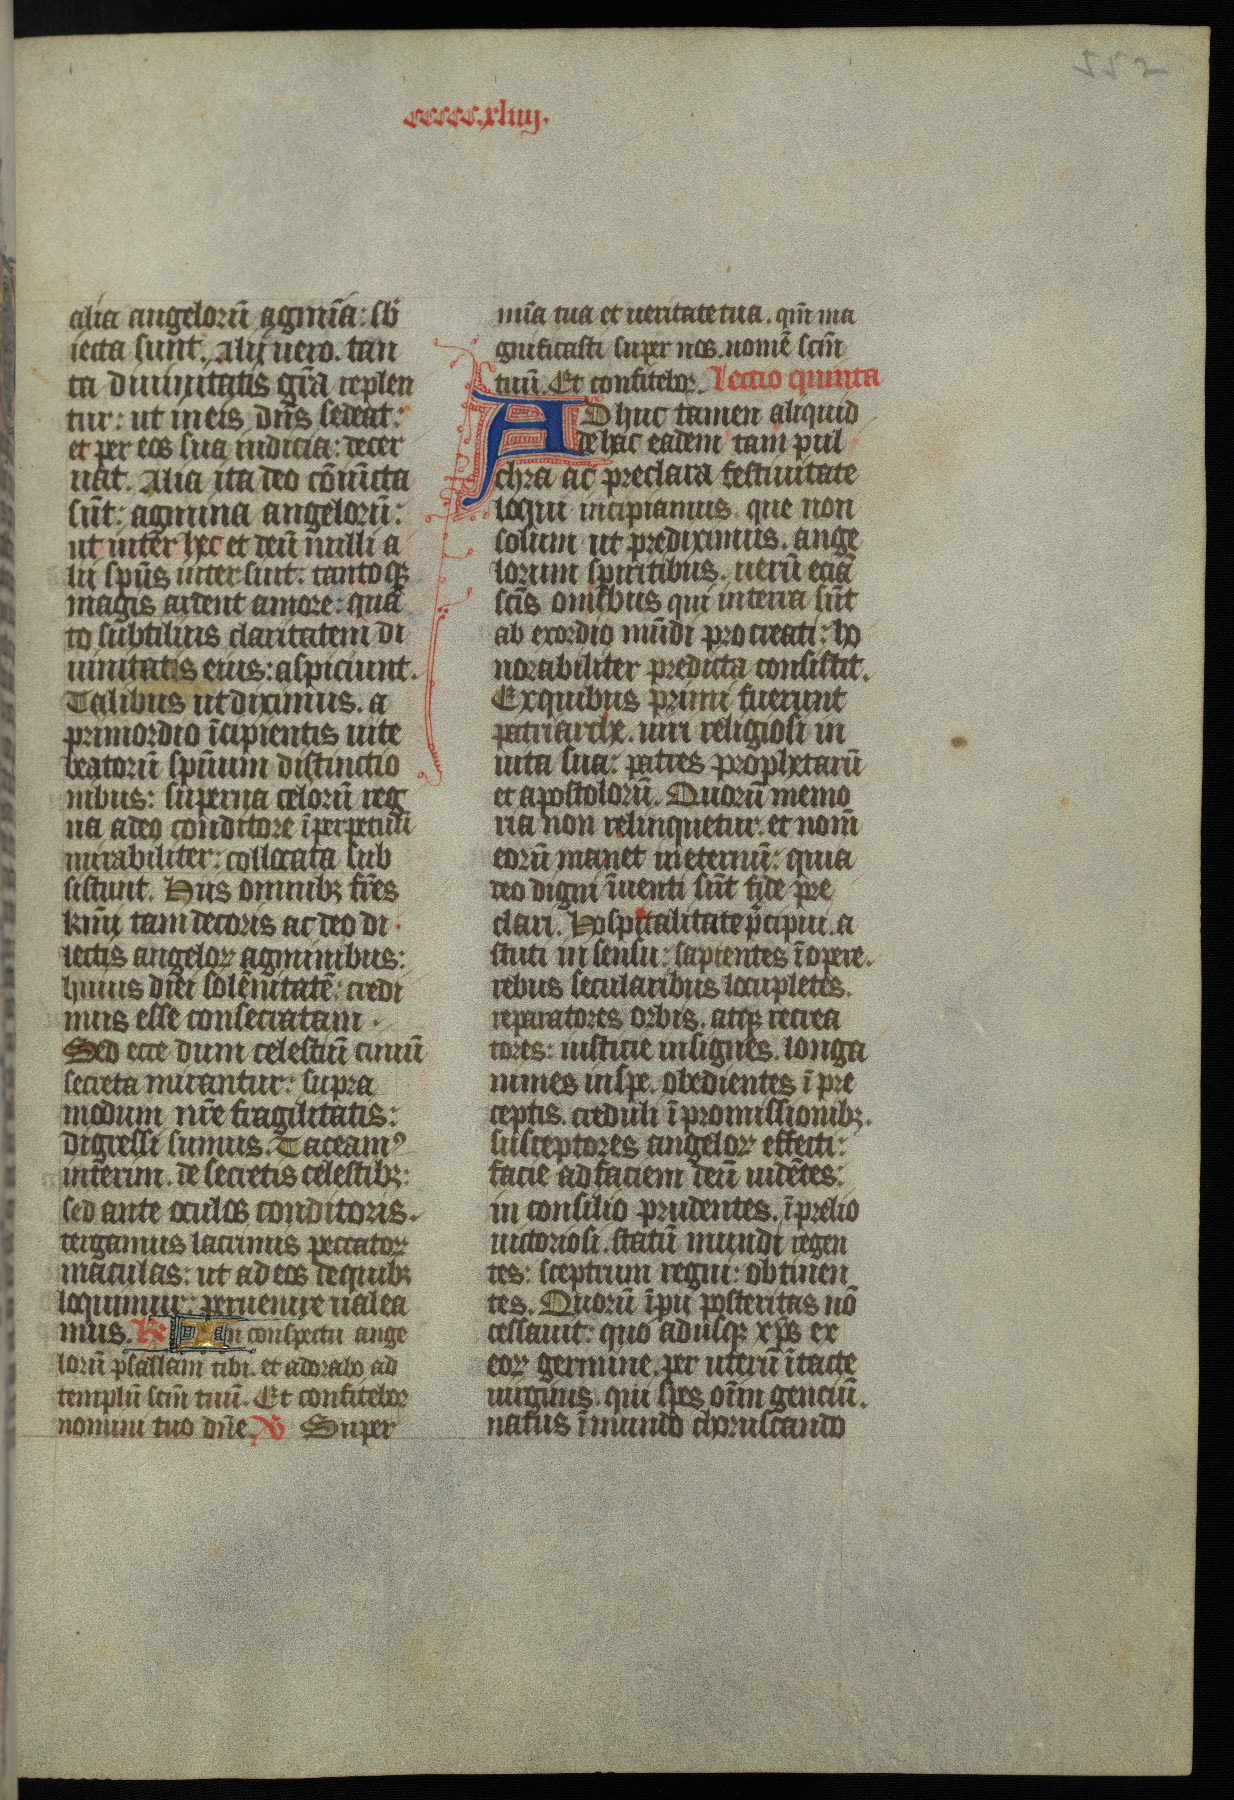 552
ccccc.xliiij.
alia angelorū agmīa: sb̄
iecta sunt. Alij uero. tan
ta diuinitatis gr̄a replen
tur: ut in eis dn̄s sedeat:
et per eos sua iudicia: decer
nat. Alia ita deo cōiūcta
sūt: agmina angelorū:
ut inter hec et deū nulli a
lii sp̄us inter sint: tanto qȝ
magis ardent amore: quā
to subtilius claritatem di
uinitatis eius: aspiciunt.
Talibus ut diximus. a
primordio īcipientis uite
beatorū sp̄uum distinctio
nibus: superna celorū reg
na a deo conditore ī perpetuū
mirabiliter: collocata sub
sistunt. Hiis omnibȝ fr̄es
km̄i tam decoris ac deo di
lectis angeloꝝ agminibus:
huius diei solēnitatē: credi
mus esse consecratam.
Sed ecce dum celestiū ciuiū
secreta mirantur: supra
modum nr̄e fragilitatis:
digressi sumus. Taceamꝰ
interim. de secretis celestibȝ:
sed ante oculos conditoris.
tergamus lacrimis peccatoꝝ
maculas: ut ad eos de quibȝ
loquimur: peruenire ualea
mus. R̄e In conspectu ange
lorū psallam tibi. et adorabo ad
templū scm̄ tuū. Et confitebor
nomini tuo dn̄e. V̄ Super
mīa tua et ueritate tua. qm̄ ma
gnificasti super nos. nomē scm̄
tuū. Et confitebor. Lectio quinta
ADhuc tamen aliquid
de hac eadem tam pul
chra ac preclara festiuitate
loqui incipiamus. que non
solum ut prediximus. ange
lorum spiritibus. uerū eciā
scīs omībus qui in terra sūt
ab exordio mūdi pro creati: ho
norabiliter predicta consistit.
Ex quibus primi fuerunt
patriarche. uiri religiosi in
uita sua: patres prophetarū
et apostolorū. Quorū memo
ria non relinquetur. et nom̄
eorū manet in eternū: quia
deo digni īuenti sūt fide pre
clari. Hospitalitate p̄cipui. a
stuti in sensu: sapientes ī opere.
rebus secularibus locupletes.
reparatores orbis. atqȝ recrea
tores: iusticie insignes. longa
nimes in spe. obedientes ī pre
ceptis. creduli ī promissionibȝ.
susceptores angeloꝝ effecti:
facie ad faciem deū uidētes:
in consilio prudentes. ī prelio
uictoriosi. statū mundi regen
tes: sceptrum regni: obtinen
tes. Quorū īpū posteritas nō
cessauit: quo adusqȝ xp̄s ex
eoꝝ germine. per uterū ītacte
uirginis. qui spes oīm genciū.
natus ī mundo choruscando